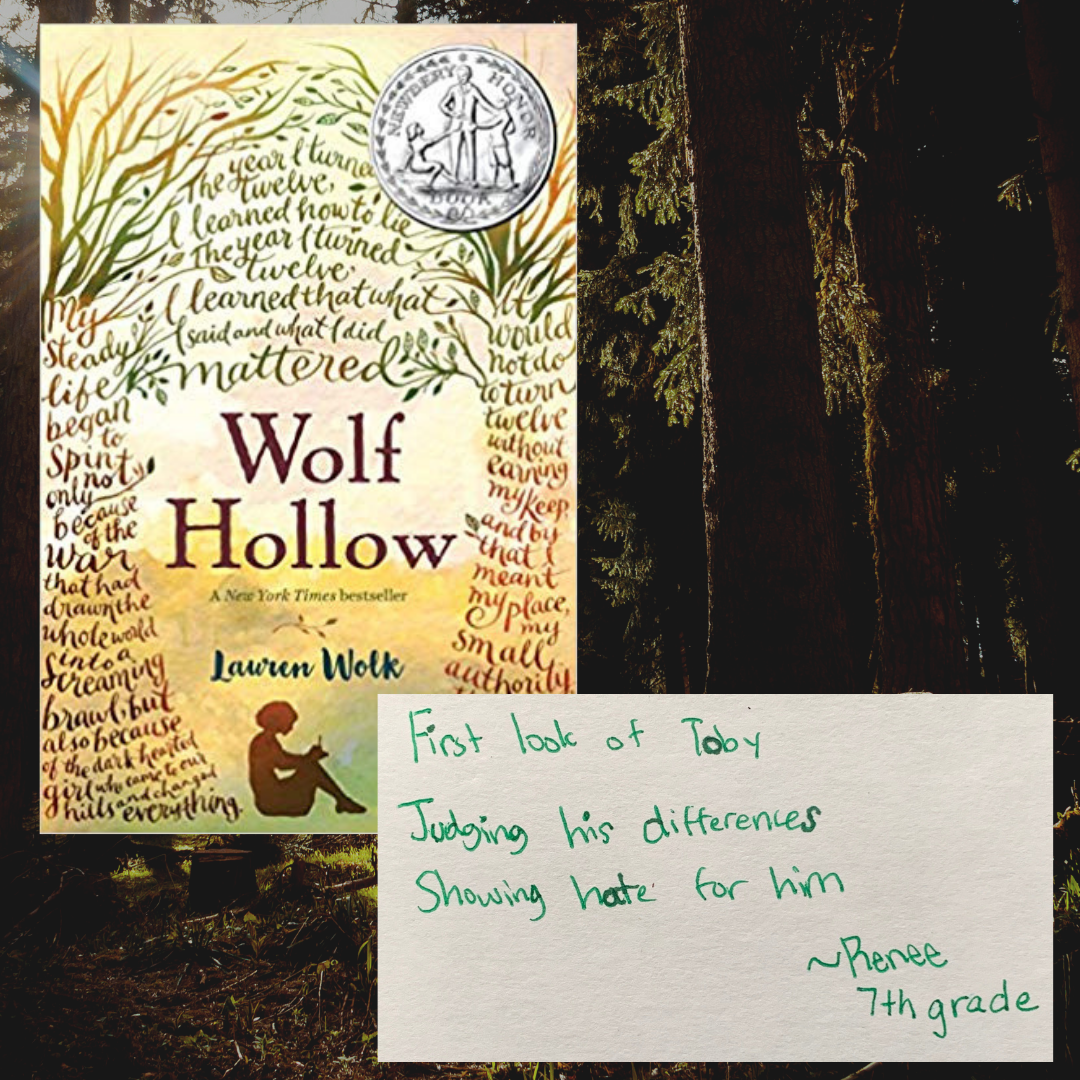 NEWBERY HONOR
BOOK
The year I turned
twelve,
I learned how to lie
The year I turned
twelve.
I learned that what
I said and what I did
mattered
My
steady
life
began
to
spin
not
only
because
of the
war
that had
drawn the
whole world
into a
screaming
brawl, but
also because
of the dark hearted
girl who came to our
hills and changed
everything.
It
would
not do
to turn
twelve
without
earning
my keep,
and by
that I
meant
my place,
my
small
authority,
Wolf
Hollow
A New York Times bestseller
Lauren Wolk
First look of Toby
Judging his differences
Showing hate for him
~Renee
7th grade